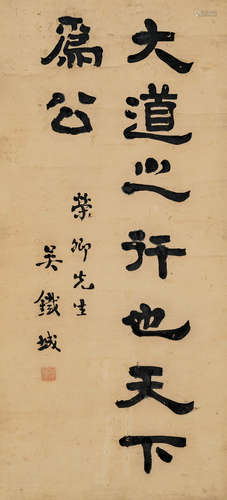 大道之行也天下
為公
榮卿先生
吳鐵城